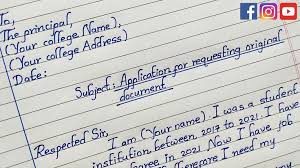 To,
The principal,
(Your college Name),
(Your college Address)
Date:
Subject: Application for requesting original
document.
Respected Sir,
I am (Your name). I was a student
institution between 2017 to 2021. I have
degree in 2021. Now I have job
Therefore I need my